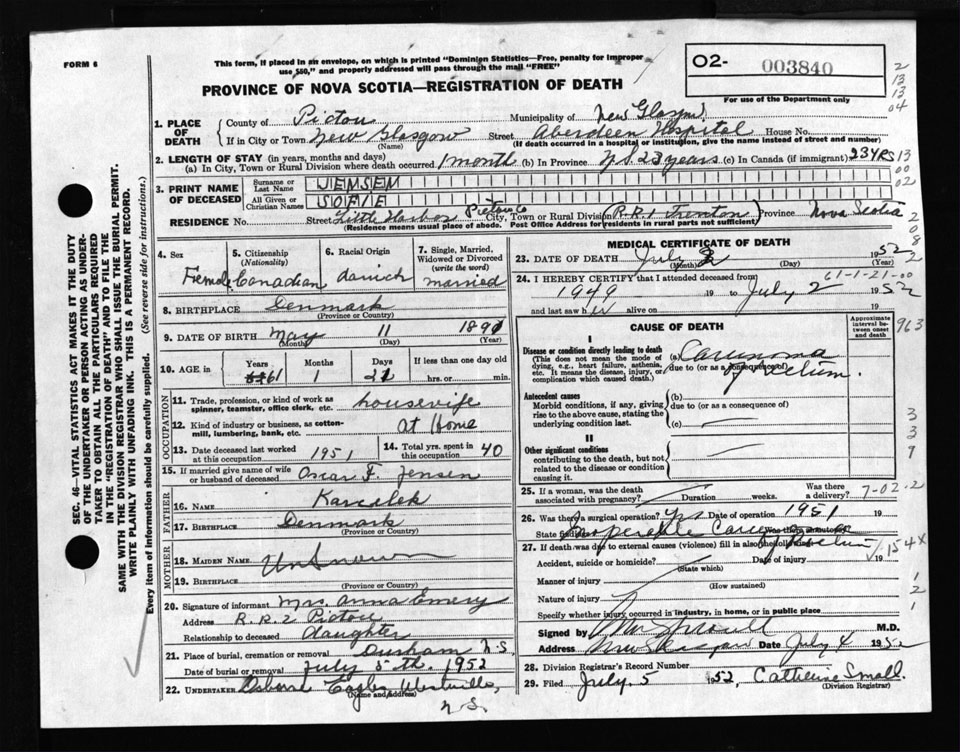 FORM 6
This form, if placed in an envelope, on which is printed "Dominion Statistics—Free, penalty for improper
use $50," and properly addressed will pass through the mail "FREE"
O2- 003840
For use of the Department only
PROVINCE OF NOVA SCOTIA—REGISTRATION OF DEATH
2
13
13
04
1. PLACE OF DEATH
County of Pictou Municipality of New Glasgow
If in City or Town New Glasgow Street Aberdeen Hospital House No.
(Name) (If death occurred in a hospital or institution, give the name instead of street and number)
2. LENGTH OF STAY (in years, months and days)
(a) In City, Town or Rural Division where death occurred 1 month (b) In Province N.S. 23 years (c) In Canada (if immigrant) 23 YRS
13
00
02
3. PRINT NAME OF DECEASED
Surname or Last Name JENSEN
All Given or Christian Names SOFIE
RESIDENCE No. Street Little Harbor Pictou Co City, Town or Rural Division R.R.1 Trenton Province Nova Scotia
(Residence means usual place of abode. Post Office Address for residents in rural parts not sufficient)
4. Sex Female
5. Citizenship (Nationality) Canadian
6. Racial Origin danish
7. Single, Married, Widowed or Divorced (write the word) married
8. BIRTHPLACE Denmark
(Province or Country)
9. DATE OF BIRTH May 11 1891
(Month) (Day) (Year)
10. AGE in Years 61 Months 1 Days 21 If less than one day old hrs. or min.
OCCUPATION
11. Trade, profession, or kind of work as spinner, teamster, office clerk, etc. housewife
12. Kind of industry or business, as cotton-mill, lumbering, bank, etc. at Home
13. Date deceased last worked at this occupation 1951
14. Total yrs. spent in this occupation 40
15. If married give name of wife or husband of deceased Oscar F. Jensen
FATHER
16. NAME
17. BIRTHPLACE Denmark
(Province or Country)
MOTHER
18. MAIDEN NAME Unknown
19. BIRTHPLACE
(Province or Country)
20. Signature of informant Mrs. Anna Emery
Address R.R.2 Pictou
Relationship to deceased daughter
21. Place of burial, cremation or removal Durham N.S.
Date of burial or removal July 5th. 1952
22. UNDERTAKER Osborne Eagles Westville,
(Name and Address)
N.S.
MEDICAL CERTIFICATE OF DEATH
23. DATE OF DEATH July 2 1952
(Month) (Day) (Year)
61-1-21-00
24. I HEREBY CERTIFY that I attended deceased from
1949 19 to July 2 1952
and last saw her alive on 19
CAUSE OF DEATH
Approximate interval between onset and death
I
Disease or condition directly leading to death
(This does not mean the mode of dying, e.g., heart failure, asthenia, etc. It means the disease, injury, or complication which caused death.)
(a) Carcinoma
due to (or as a consequence of)
of Rectum.
Antecedent causes
Morbid conditions, if any, giving rise to the above cause, stating the underlying condition last.
(b)
due to (or as a consequence of)
(c)
II
Other significant conditions
contributing to the death, but not related to the disease or condition causing it.
963
3
3
9
25. If a woman, was the death associated with pregnancy? Duration weeks. Was there a delivery?
7-02.2
26. Was there a surgical operation? Yes Date of operation 1951 19
State findings Inoperable Carcinoma of Rectum Was there an autopsy?
27. If death was due to external causes (violence) fill in also the following:
Accident, suicide or homicide? Date of injury 19
(State which)
154X
Manner of injury
(How sustained)
Nature of injury
Specify whether injury occurred in industry, in home, or in public place
1
2
1
Signed by M.D.
Address New Glasgow Date July 4 1952
28. Division Registrar's Record Number
29. Filed July. 5 1952, Catherine Small.
(Division Registrar)
SEC. 46—VITAL STATISTICS ACT MAKES IT THE DUTY
OF THE UNDERTAKER OR PERSON ACTING AS UNDER-
TAKER TO OBTAIN ALL THE PARTICULARS REQUIRED
IN THE "REGISTRATION OF DEATH" AND TO FILE THE
SAME WITH THE DIVISION REGISTRAR WHO SHALL ISSUE THE BURIAL PERMIT.
WRITE PLAINLY WITH UNFADING INK. THIS IS A PERMANENT RECORD.
Every item of information should be carefully supplied. (See reverse side for instructions.)